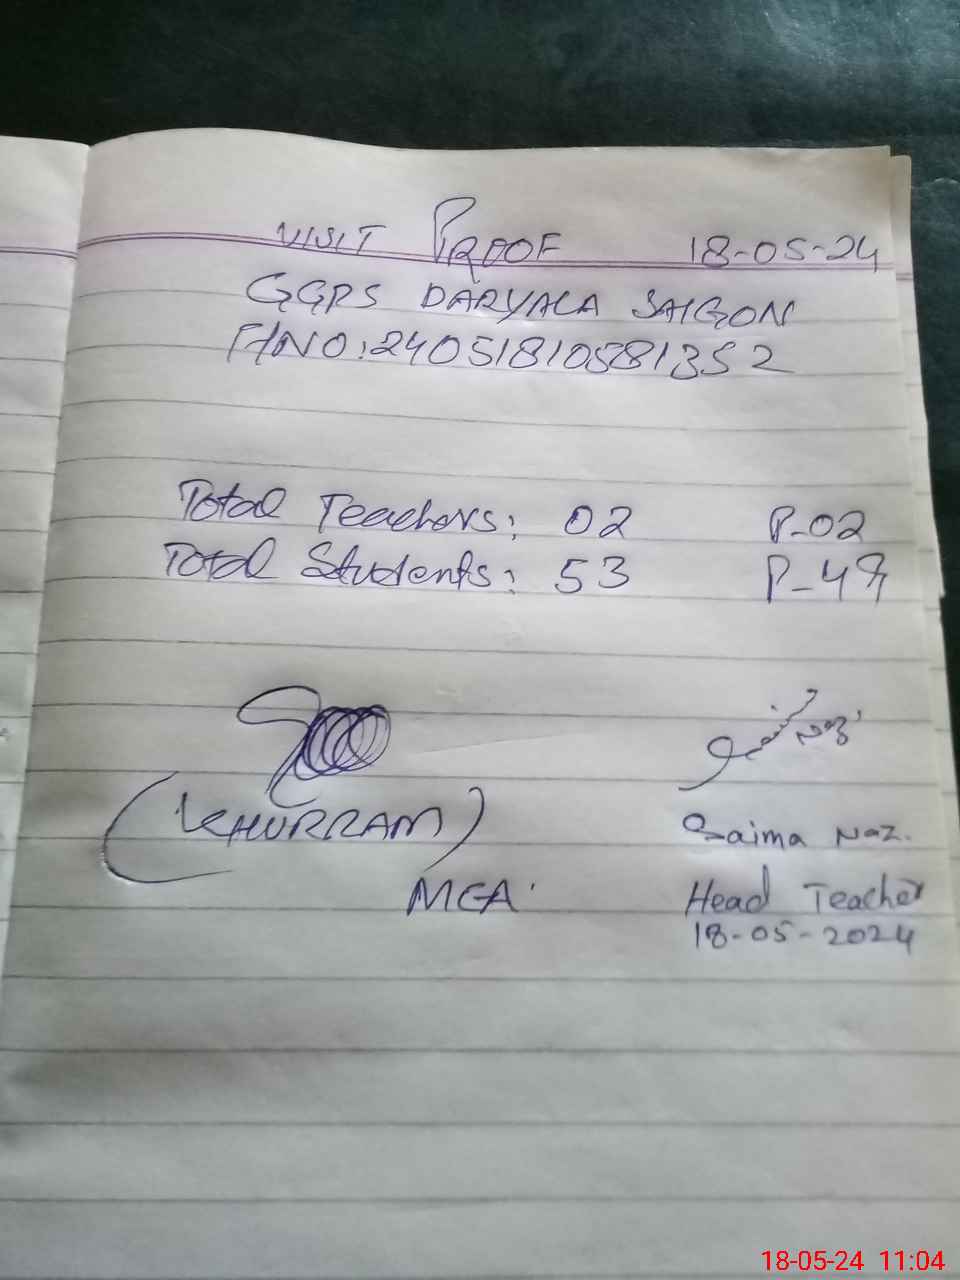 VISIT PROOF 18-05-24
GGPS DARYALA SAIGON
F/NO:240518105813S2
Total Teachers: 02 P-02
Total Students: 53 P-49
Naz
(KHURRAM)
Saima Naz.
MEA
Head Teacher
18-05-2024
18-05-24 11:04